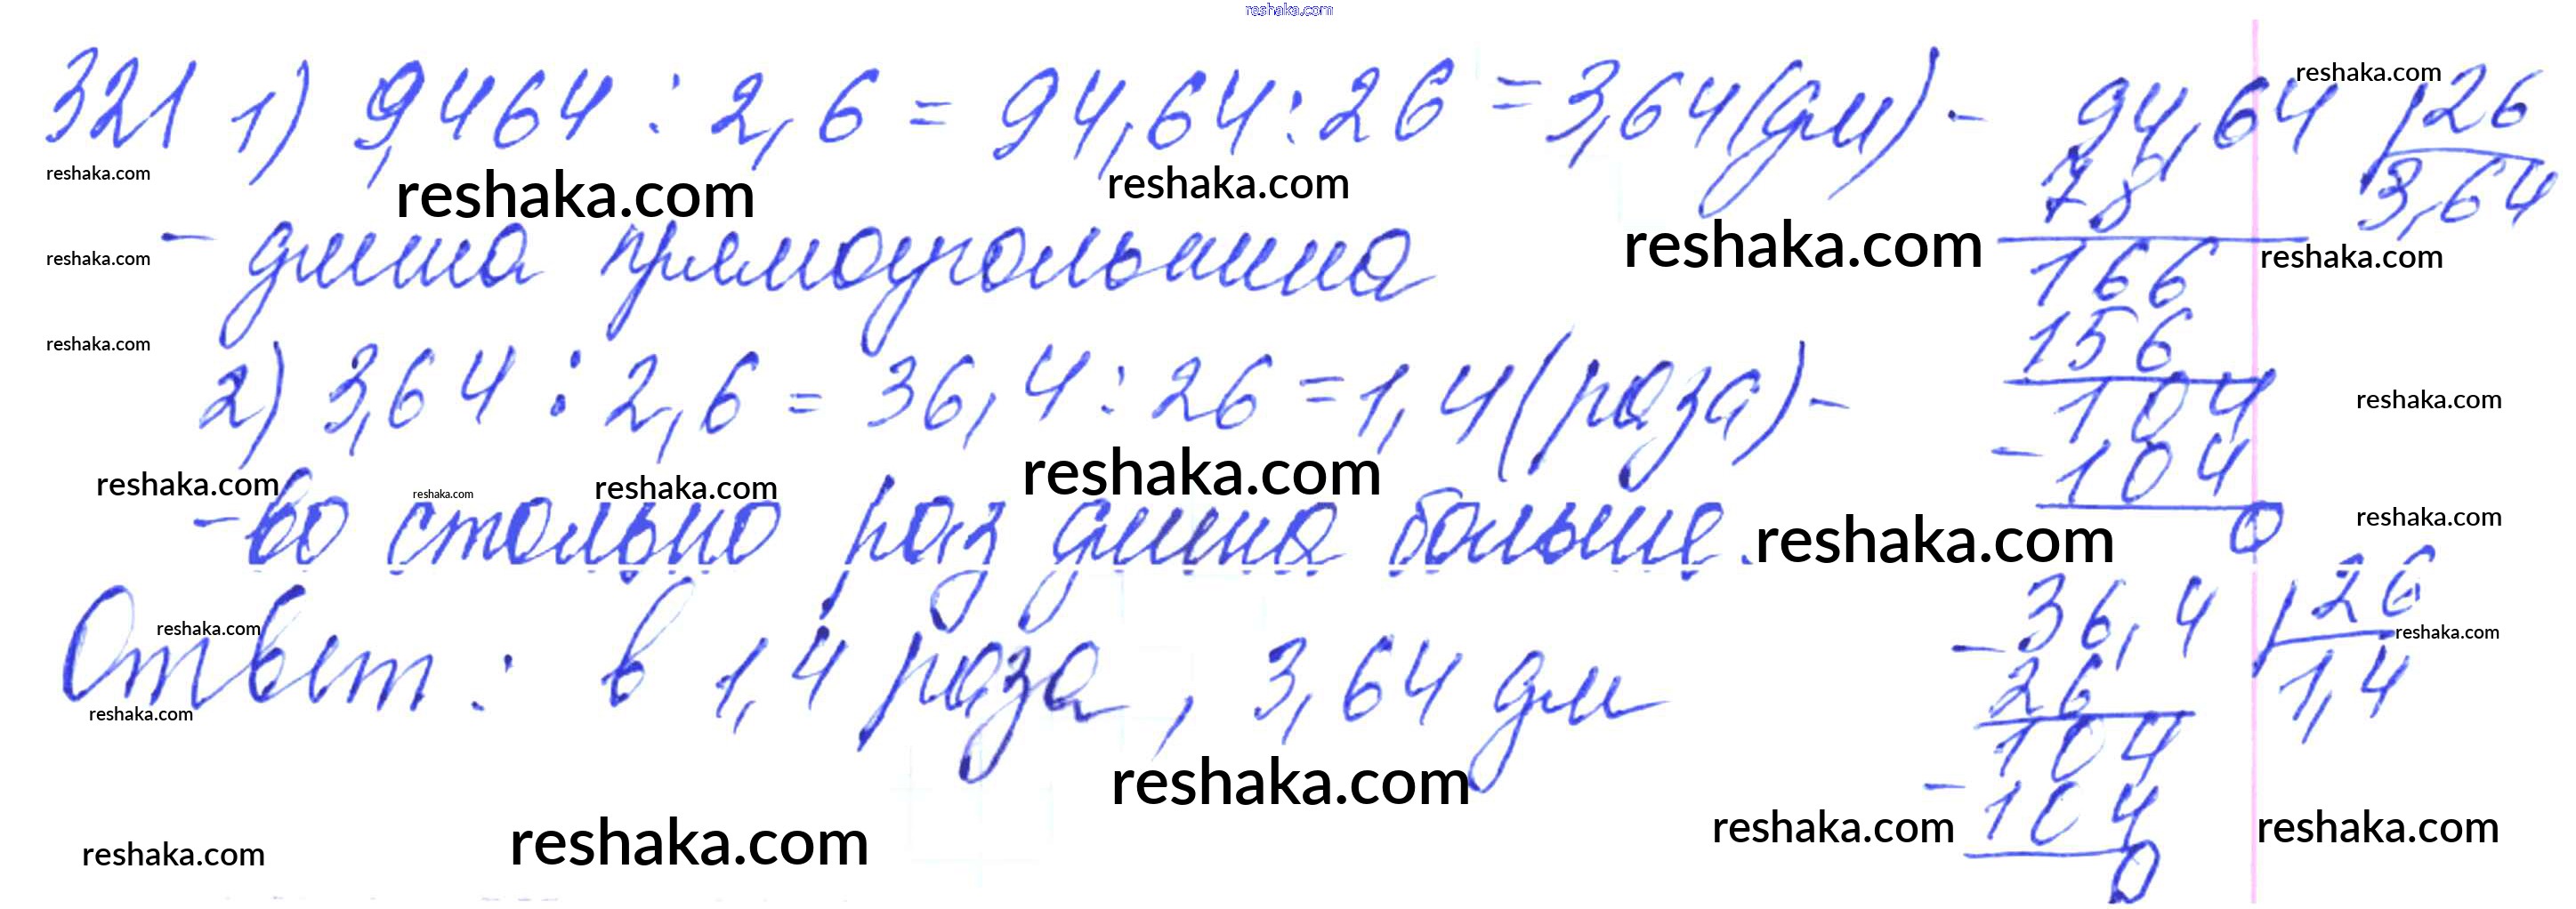 reshaka.com
321 1) 9,464 : 2,6 = 94,64 : 26 = 3,64 (дм) - 94,64 | 26
reshaka.com
reshaka.com reshaka.com reshaka.com 78 3,64
- длина прямоугольника reshaka.com 166 reshaka.com
reshaka.com
reshaka.com 156
2) 3,64 : 2,6 = 36,4 : 26 = 1,4 (раза) - 104 reshaka.com
reshaka.com reshaka.com reshaka.com reshaka.com - 104
- во столько раз длина больше. reshaka.com 0 reshaka.com
Ответ: в 1,4 раза, 3,64 дм - 36,4 | 26
reshaka.com reshaka.com
reshaka.com 26 1,4
reshaka.com 104
reshaka.com reshaka.com reshaka.com - 104 reshaka.com
0